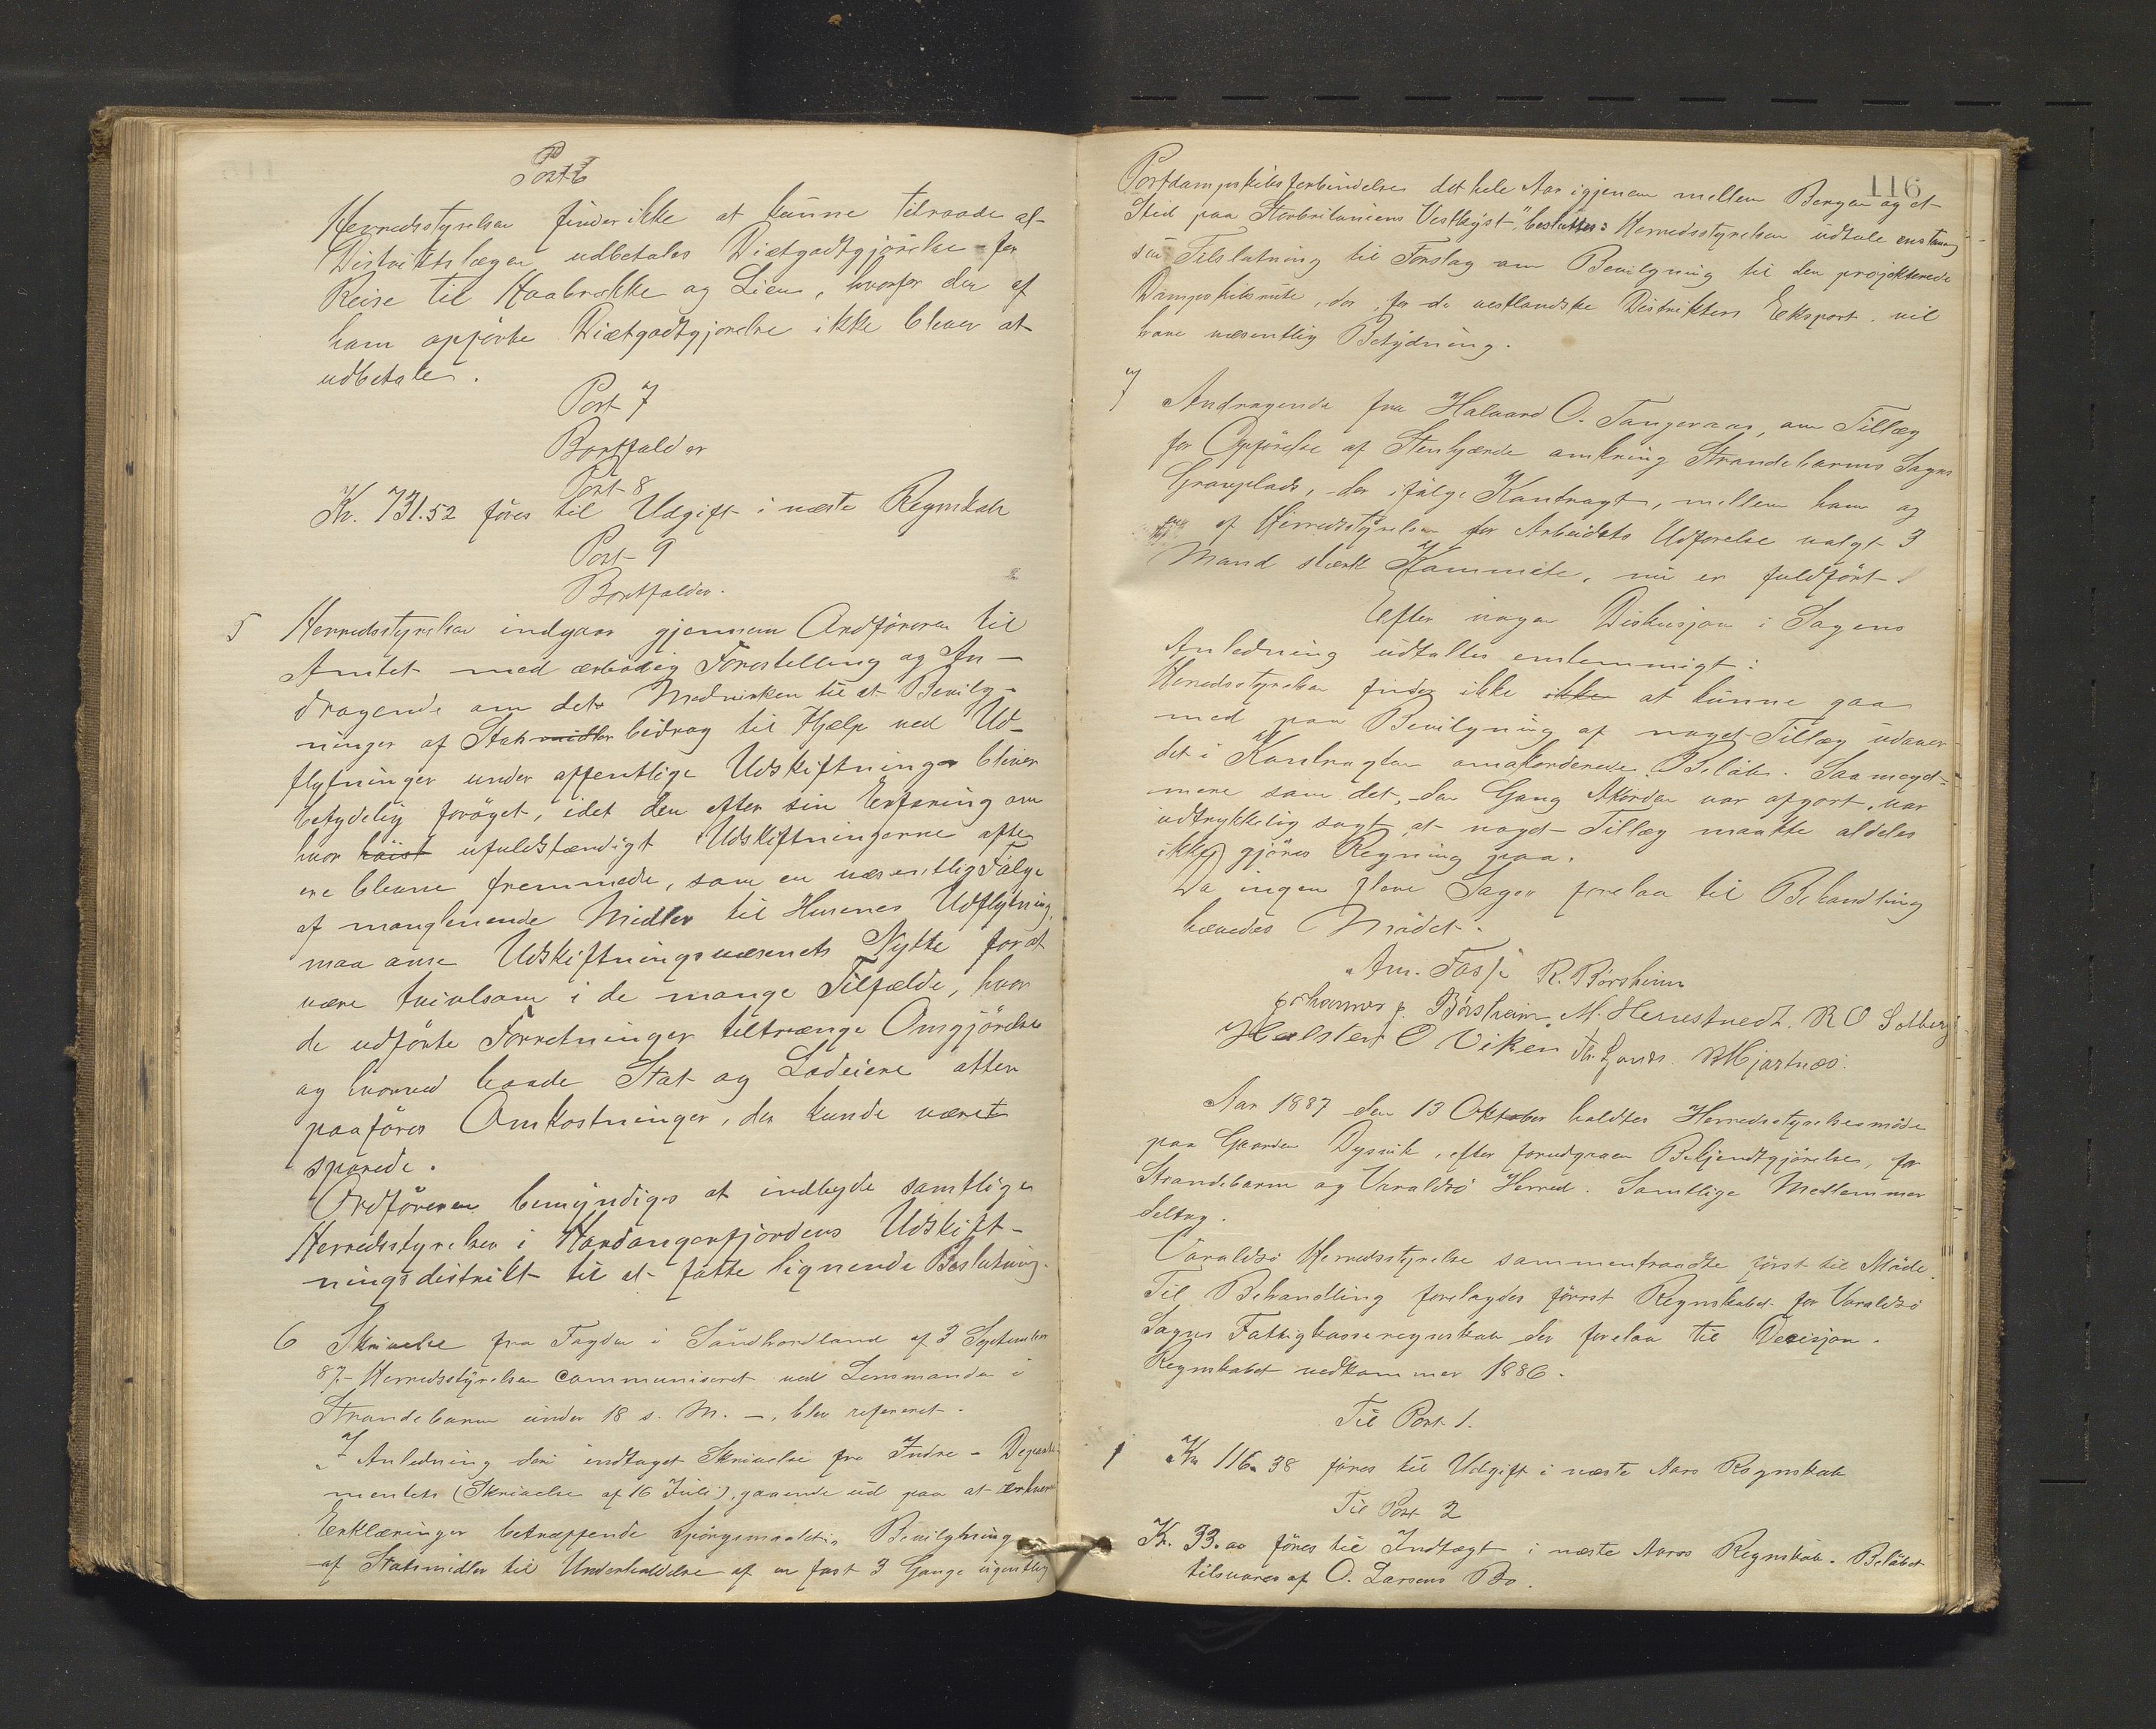 Post 6
Herredsstyrelsen finder ikke at kunne tilraade at
Distriktslægen udbetales Diætgodtgjørelse for
Reise til Haabrekke og Lien, hvorfor den af
ham opførte Diætgodtgjørelse ikke bliver at
udbetale.
Post 7
Bortfalder
Post 8
Kr. 731.52 føres til Udgift i næste Regnskab
Post 9
Bortfalder.
5 Herredsstyrelsen indgaar gjennem Ordføreren til
Amtet med ærbødig Forestilling og An-
dragende om dets Medvirken til at Bevilg-
ninger af Stats midler bidrag til Hjælp ved Ud-
flytninger under offentlige Udskiftninger bliver
betydelig forøget, idet den efter sin Erfaring om
hvor høist ufuldstændigt Udskiftningerne ofte
ere blevne fremmede, som en væsentlig Følge
af manglenende Midler til Husenes Udflytning,
maa anse Udskiftningsvæsenets Nytte for at
være tvivlsom i de mange Tilfælde, hvor
de udførte Forretninger tiltrænge Omgjørelse
og hvorved baade Stat og Lodeiere atter
paaføres Omkostninger, der kunde været
sparede.
Ordføreren bemyndiges at indbyde samtlige
Herredsstyrelser i Hardangerfjordens Udskift-
ningsdistrikt til at fatte lignende Beslutning.
6 Skrivelse fra Fogden i Søndhordland af 3 September
87.- Herredsstyrelsen communiseret ved Lensmanden i
Strandebarm under 18 s. M. -, blev refereret.
I Anledning deri indtaget Skrivelse fra Indre - Departe
mentets (Skrivelse af 16 Juli), gaaende ud paa at erhverve
Erklæringer betræffende Spørgsmaalet in Bevilgning
af Statsmidler til Underholdelse af en fast 3 Gange ugentlig
116
Postdampskibsforbindelse det hele Aar igjenem mellem Bergen og et
Sted paa Storbritaniens Vestkyst," besluttes: Herredsstyrelsen udtale enstemmig
sin Tilslutning til Forslag om Bevilgning til den projekterede
Dampskibsrute, der for de vestlandske Distrikters Eksport vil
have væsentlig Betydning.
7 Andragende fra Halvard O. Tangeraas, om Tillæg
for Opførelse af Stengjærde omkring Strandebarms Sogns
Gravplads, der ifølge Kontragt, mellem ham og
en af Herredsstyrelsen for Arbeidets Udførelse valgt 3
Mand stærk Kommite, nu er fuldført.
Efter nogen Diskusjon i Sagens
Anledning udtaltes enstemmigt:
Herredsstyrelsen finder ikke ikke at kunne gaa
med paa Bevilgning af noget Tillæg udover
det i Kontragten omakorderede Beløb. Saa meget
mere som det, den Gang Akorden var afgort, var
udtrykkelig sagt, at noget Tillæg maatte aldeles
ikke gjøres Regning paa.
Da ingen flere Sager forelaa til Behandling
hævedes Mødet.
Am. Fosse R. Børsheim
Johannes J. Børsheim M. Herrestvedt. R O Solberg
Halsten O Viken Th. Lond. Mjartnæs.
Aar 1887 den 13 Oktober holdtes Herredsstyrelsesmøde
paa Gaarden Dysvik, efter forudgaaen Bekjendtgjørelse, for
Strandebarm og Varaldsø Herred. Samtlige Medlemmer
deltog.
Varaldsø Herredsstyrelse sammentraadte først til Møde.
Til Behandling forelagdes først Regnskabet for Varaldsø
Sogns Fattigkasseregnskab der forelaa til Decisjon.
Regnskabet vedkommer 1886.
Til Post 1.
1 Kr 116.38 føres til Udgift i næste Aars Regnskab
Til Post 2
Kr. 33.00 føres til Indtægt i næste Aars Regnskab. Beløbet
tilsvares af O. Larsens Bo.